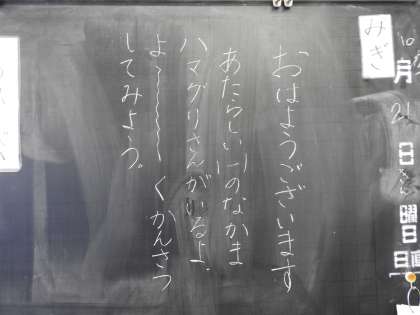 みぎ
10月21日
曜日
日直
おはようございます
あたらしい1のなかま
ハマグリさんがいるよ。
よ〜〜〜くかんさつ
してみよう。